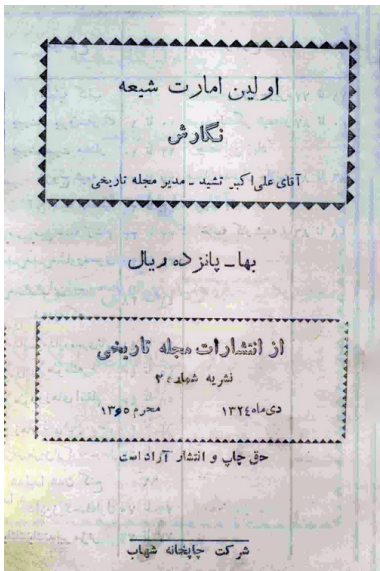 اولین امارت شیعه
نگارش
آقای علی اکبر تشید ـ مدیر مجله تاریخی
بها ـ پانزده ریال
از انتشارات مجله تاریخی
نشریه شماره ۳
دی ماه ۱۳۲٤ محرم ۱۳٦۵
حق چاپ و انتشار آزاد است
شرکت چاپخانه شهاب